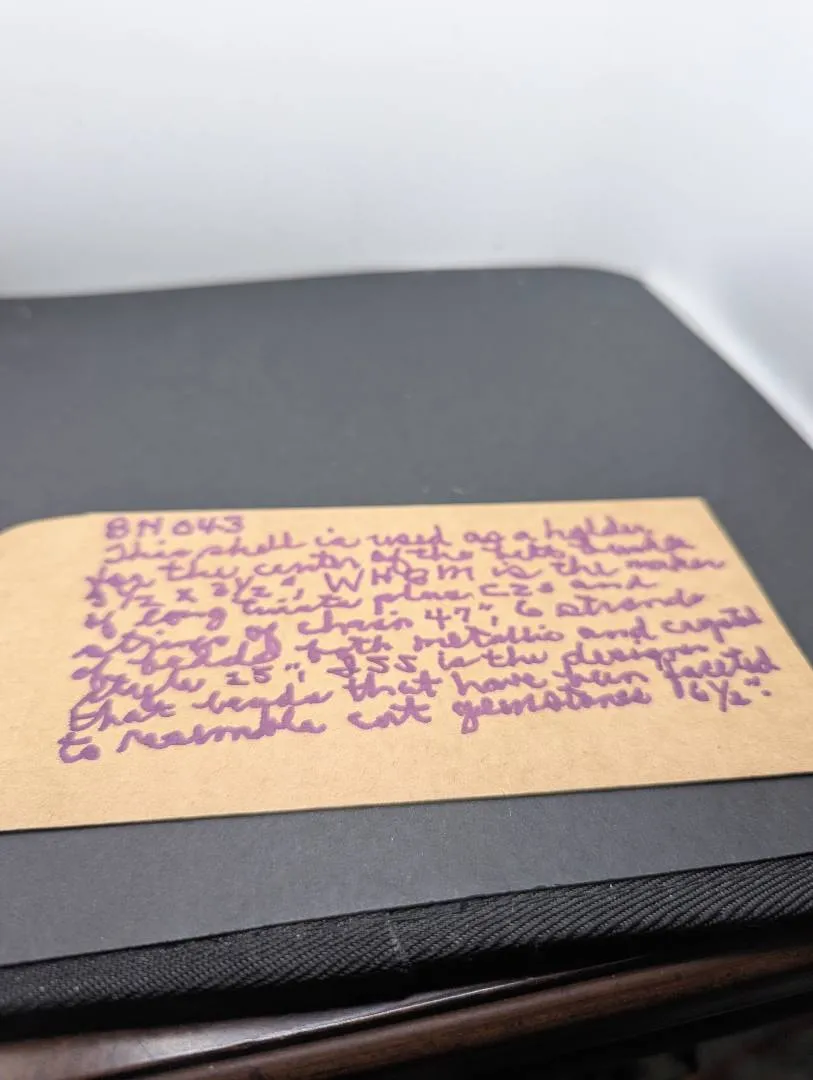 BN 043
This shell is used as a holder
for the center of the
2 1/2 x 2 1/2". WHBM is the maker
of long twists plus CZs and
strings of chain 47", 6 strands
of beads both metallic and crystal
style 25", is the designer
that beads that have been faceted
to resemble cut gemstones 16 1/2".